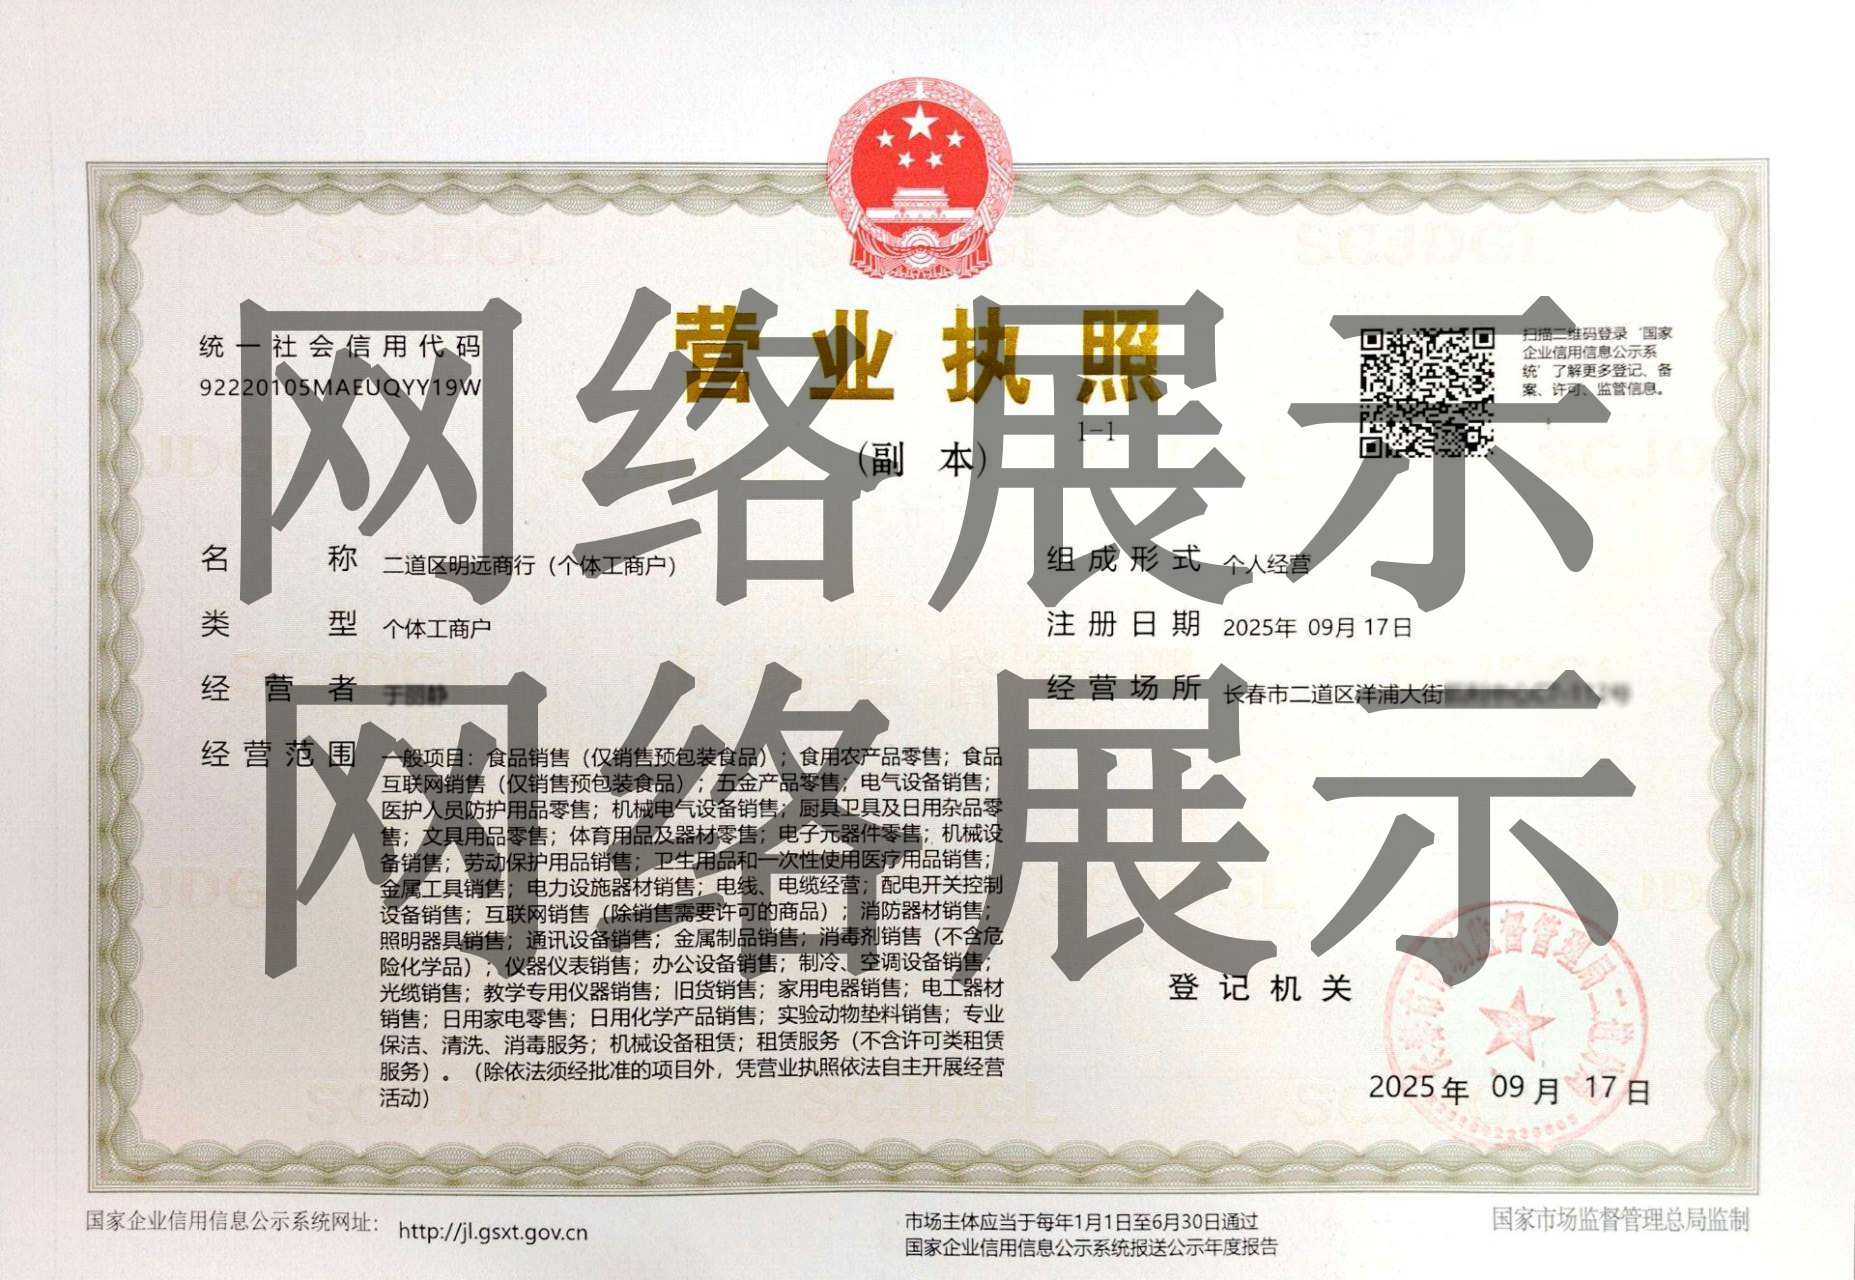 统一社会信用代码
92220105MAEUQYY19W
营业执照
(副 本)
1-1
扫描二维码登录‘国家
企业信用信息公示系
统’了解更多登记、备
案、许可、监管信息。
名称 二道区明远商行（个体工商户）
类型 个体工商户
经营者
经营范围 一般项目：食品销售（仅销售预包装食品）；食用农产品零售；食品
互联网销售（仅销售预包装食品）；五金产品零售；电气设备销售；
医护人员防护用品零售；机械电气设备销售；厨具卫具及日用杂品零
售；文具用品零售；体育用品及器材零售；电子元器件零售；机械设
备销售；劳动保护用品销售；卫生用品和一次性使用医疗用品销售；
金属工具销售；电力设施器材销售；电线、电缆经营；配电开关控制
设备销售；互联网销售（除销售需要许可的商品）；消防器材销售；
照明器具销售；通讯设备销售；金属制品销售；消毒剂销售（不含危
险化学品）；仪器仪表销售；办公设备销售；制冷、空调设备销售；
光缆销售；教学专用仪器销售；旧货销售；家用电器销售；电工器材
销售；日用家电零售；日用化学产品销售；实验动物垫料销售；专业
保洁、清洗、消毒服务；机械设备租赁；租赁服务（不含许可类租赁
服务）。（除依法须经批准的项目外，凭营业执照依法自主开展经营
活动）
组成形式 个人经营
注册日期 2025年 09月 17日
经营场所 长春市二道区洋浦大街
登记机关
2025年 09月 17日
国家企业信用信息公示系统网址： http://jl.gsxt.gov.cn
市场主体应当于每年1月1日至6月30日通过
国家企业信用信息公示系统报送公示年度报告
国家市场监督管理总局监制
网络展示
网络展示